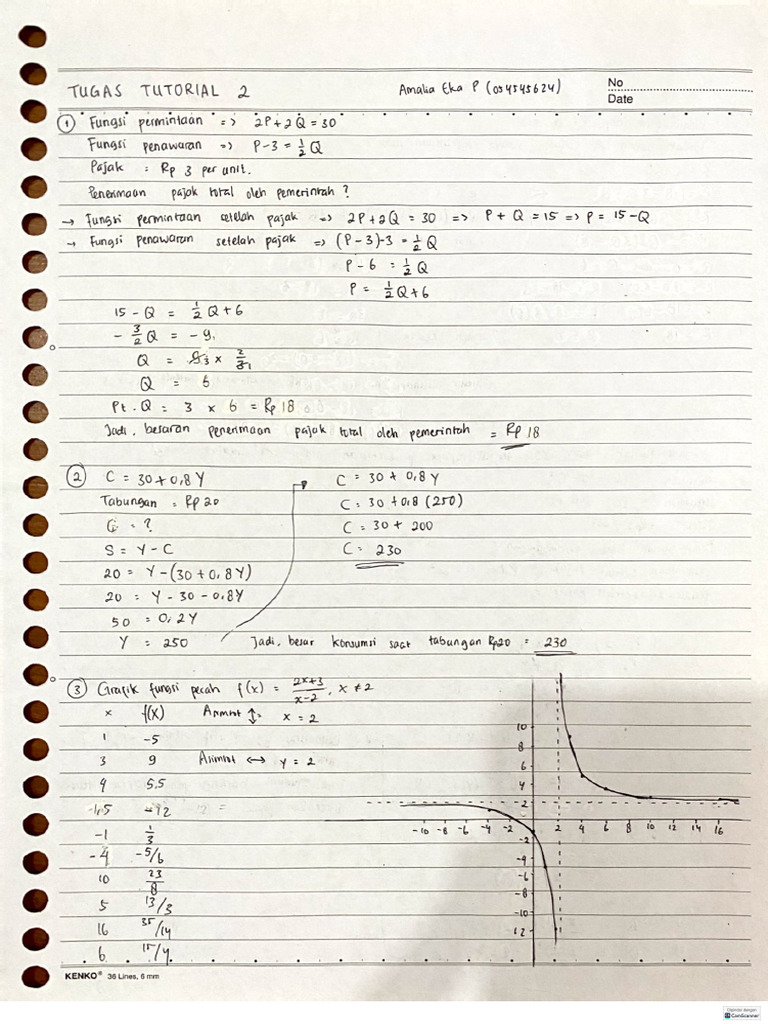 TUGAS TUTORIAL 2
Amalia Eka P (054545624)
No
Date
① Fungsi permintaan => 2P+2Q = 30
Fungsi penawaran => P-3 = 1/2 Q
Pajak = Rp 3 per unit.
Penerimaan pajak total oleh pemerintah ?
→ Fungsi permintaan setelah pajak => 2P+2Q = 30 => P+Q = 15 => P = 15-Q
→ Fungsi penawaran setelah pajak => (P-3)-3 = 1/2 Q
P-6 = 1/2 Q
P = 1/2 Q+6
15-Q = 1/2 Q+6
-3/2 Q = -9
Q = 9 3 × 2/3 1
Q = 6
Pt.Q = 3 × 6 = Rp 18
Jadi, besaran penerimaan pajak total oleh pemerintah = Rp 18
② C = 30+0,8Y
Tabungan = Rp 20
C = ?
S = Y-C
20 = Y-(30+0,8Y)
20 = Y-30-0,8Y
50 = 0,2Y
Y = 250
C = 30+0,8Y
C = 30+0,8 (250)
C = 30+ 200
C = 230
Jadi, besar konsumsi saat tabungan Rp20 = 230
③ Grafik fungsi pecah f(x) = 2x+3/x-2, x ≠ 2
x f(x) Asimtot ↕ = x = 2
1 -5
3 9 Asimtot ↔ y = 2
4 5,5
-1,5 -12
-1 1/3
-4 -5/6
10 23/8
5 13/3
16 35/14
6 15/4
10
8
6
4
2
-10 -8 -6 -4 -2 2 4 6 8 10 12 14 16
-2
-4
-6
-8
-10
-12
KENKO® 36 Lines, 6 mm
Dipindai dengan
CS CamScanner